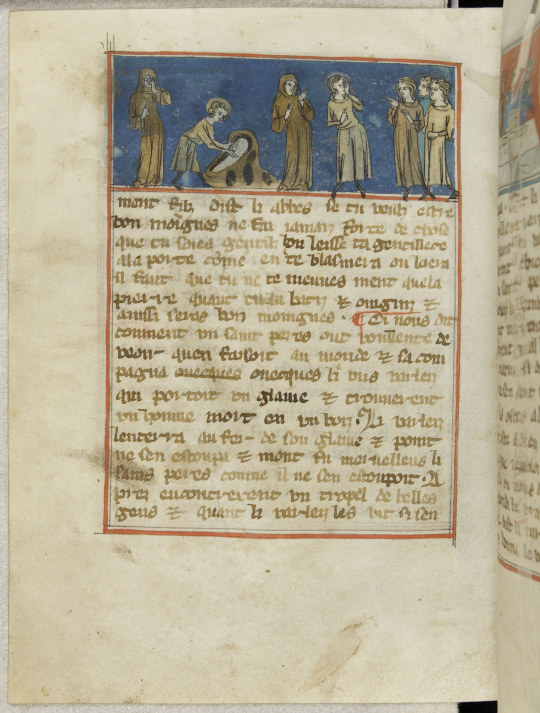 ment filz dist li abbes se tu veulz estre
bon moignes ne fai iamais force de chose
que tu soies gentilz hons leisse ta gentillece
a la porte come en te blasmera ou loera
il faut que tu ne te meuues ment que la
pierre quant tu la batis & ouigniz &
ainssi seras bon moingnes . Ci nous dit
comment vn saint peres out voullente de
veoir quen faisoit au monde & sa com
pagna ouecques onecques li vns varlen
qui portoit vn glaiue & trouuerent
vn homme mort en vn bois . Li varlen
lenterra au fer de son glaiue & point
ne sen estoupa & mont fu merueilleus li
sains peres comme il ne sen estoupoit . A
prez encontrerent vn tropel de belles
gens & quant li varlen les vit si sen